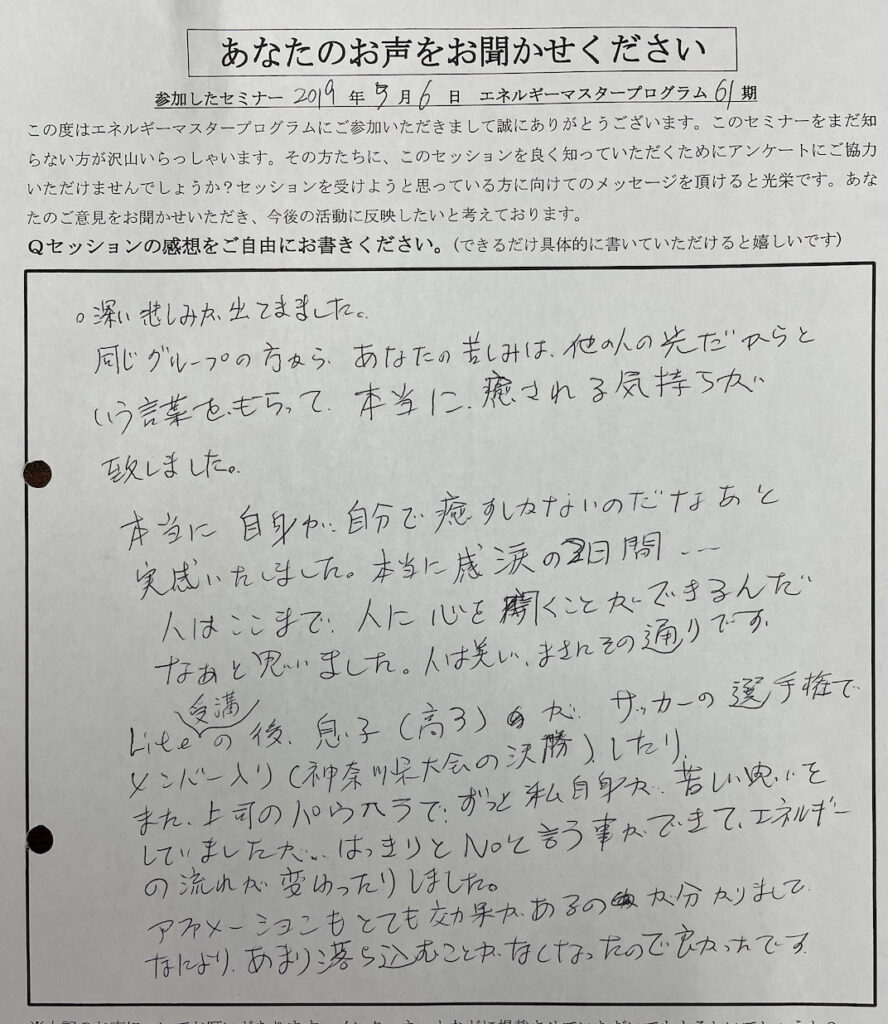 あなたのお声をお聞かせください
参加したセミナー 2019 年 5 月 6 日 エネルギーマスタープログラム 61 期
この度はエネルギーマスタープログラムにご参加いただきまして誠にありがとうございます。このセミナーをまだ知
らない方が沢山いらっしゃいます。その方たちに、このセッションを良く知っていただくためにアンケートにご協力
いただけませんでしょうか？セッションを受けようと思っている方に向けてのメッセージを頂けると光栄です。あな
たのご意見をお聞かせいただき、今後の活動に反映したいと考えております。
Qセッションの感想をご自由にお書きください。（できるだけ具体的に書いていただけると嬉しいです）
○深い悲しみが出てきました。
同じグループの方から、あなたの苦しみは、他の人の光だからと
いう言葉をもらって、本当に、癒される気持ちが
致しました。
本当に 自身が、自分で癒すしかないのだなあと
実感いたしました。本当に感涙の2日間 ――
人はここまで、人に心を開くことができるんだ
なあと思いました。人は美しい、まさにその通りです。
受講
Liteの後、息子（高3）が サッカーの選手権で
メンバー入り（神奈川県大会の決勝）したり、
また、上司のパワハラで、ずっと私自身が、苦しい思いを
していましたが、はっきりとNoと言う事ができて、エネルギー
の流れが変わったりしました。
アファメーションもとても効果があるのが分かりまして
なにより、あまり落ち込むことがなくなったので良かったです。